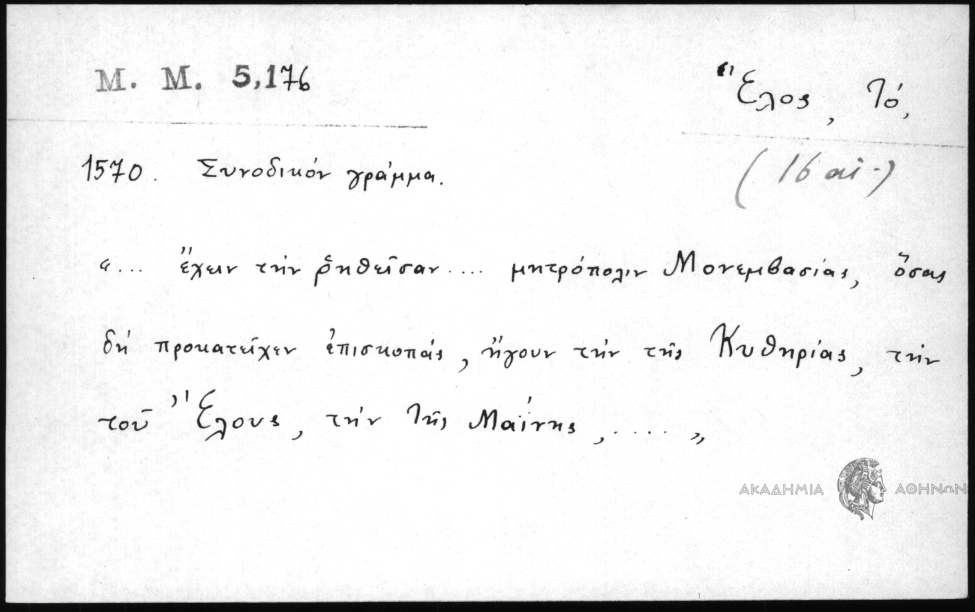 Μ. Μ. 5,176
Ἕλος, Τό,
(16 αἰ.)
1570. Συνοδικόν γράμμα.
«... ἔχειν τήν ῥηθεῖσαν .... μητρόπολιν Μονεμβασίας, ὅσας
δή προκατεῖχεν ἐπισκοπάς, ἤγουν τήν τῆς Κυθηρίας, τήν
τοῦ Ἕλους, τήν τῆς Μαΐνης, ..... »
ΑΚΑΔΗΜΙΑ ΑΘΗΝΩΝ